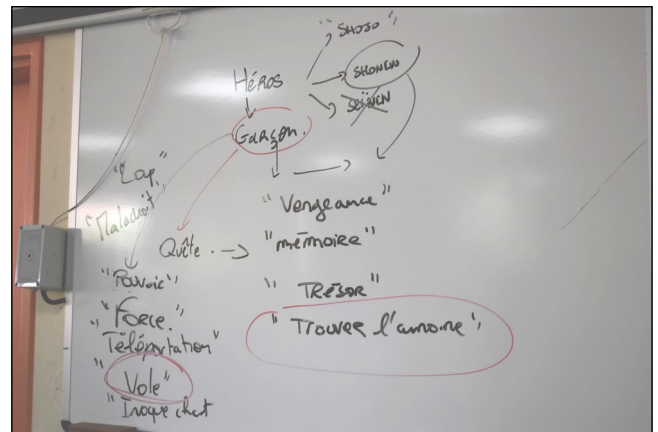 "SHOJO"
Héros
SHONEN
SEINEN
GARÇON.
"Maladroit"
"Vengeance"
Quête. → "mémoire"
"Pouvoir"
"TRÉSOR"
"Force."
"Trouver l'amoire"
Téléportation"
"Vole"